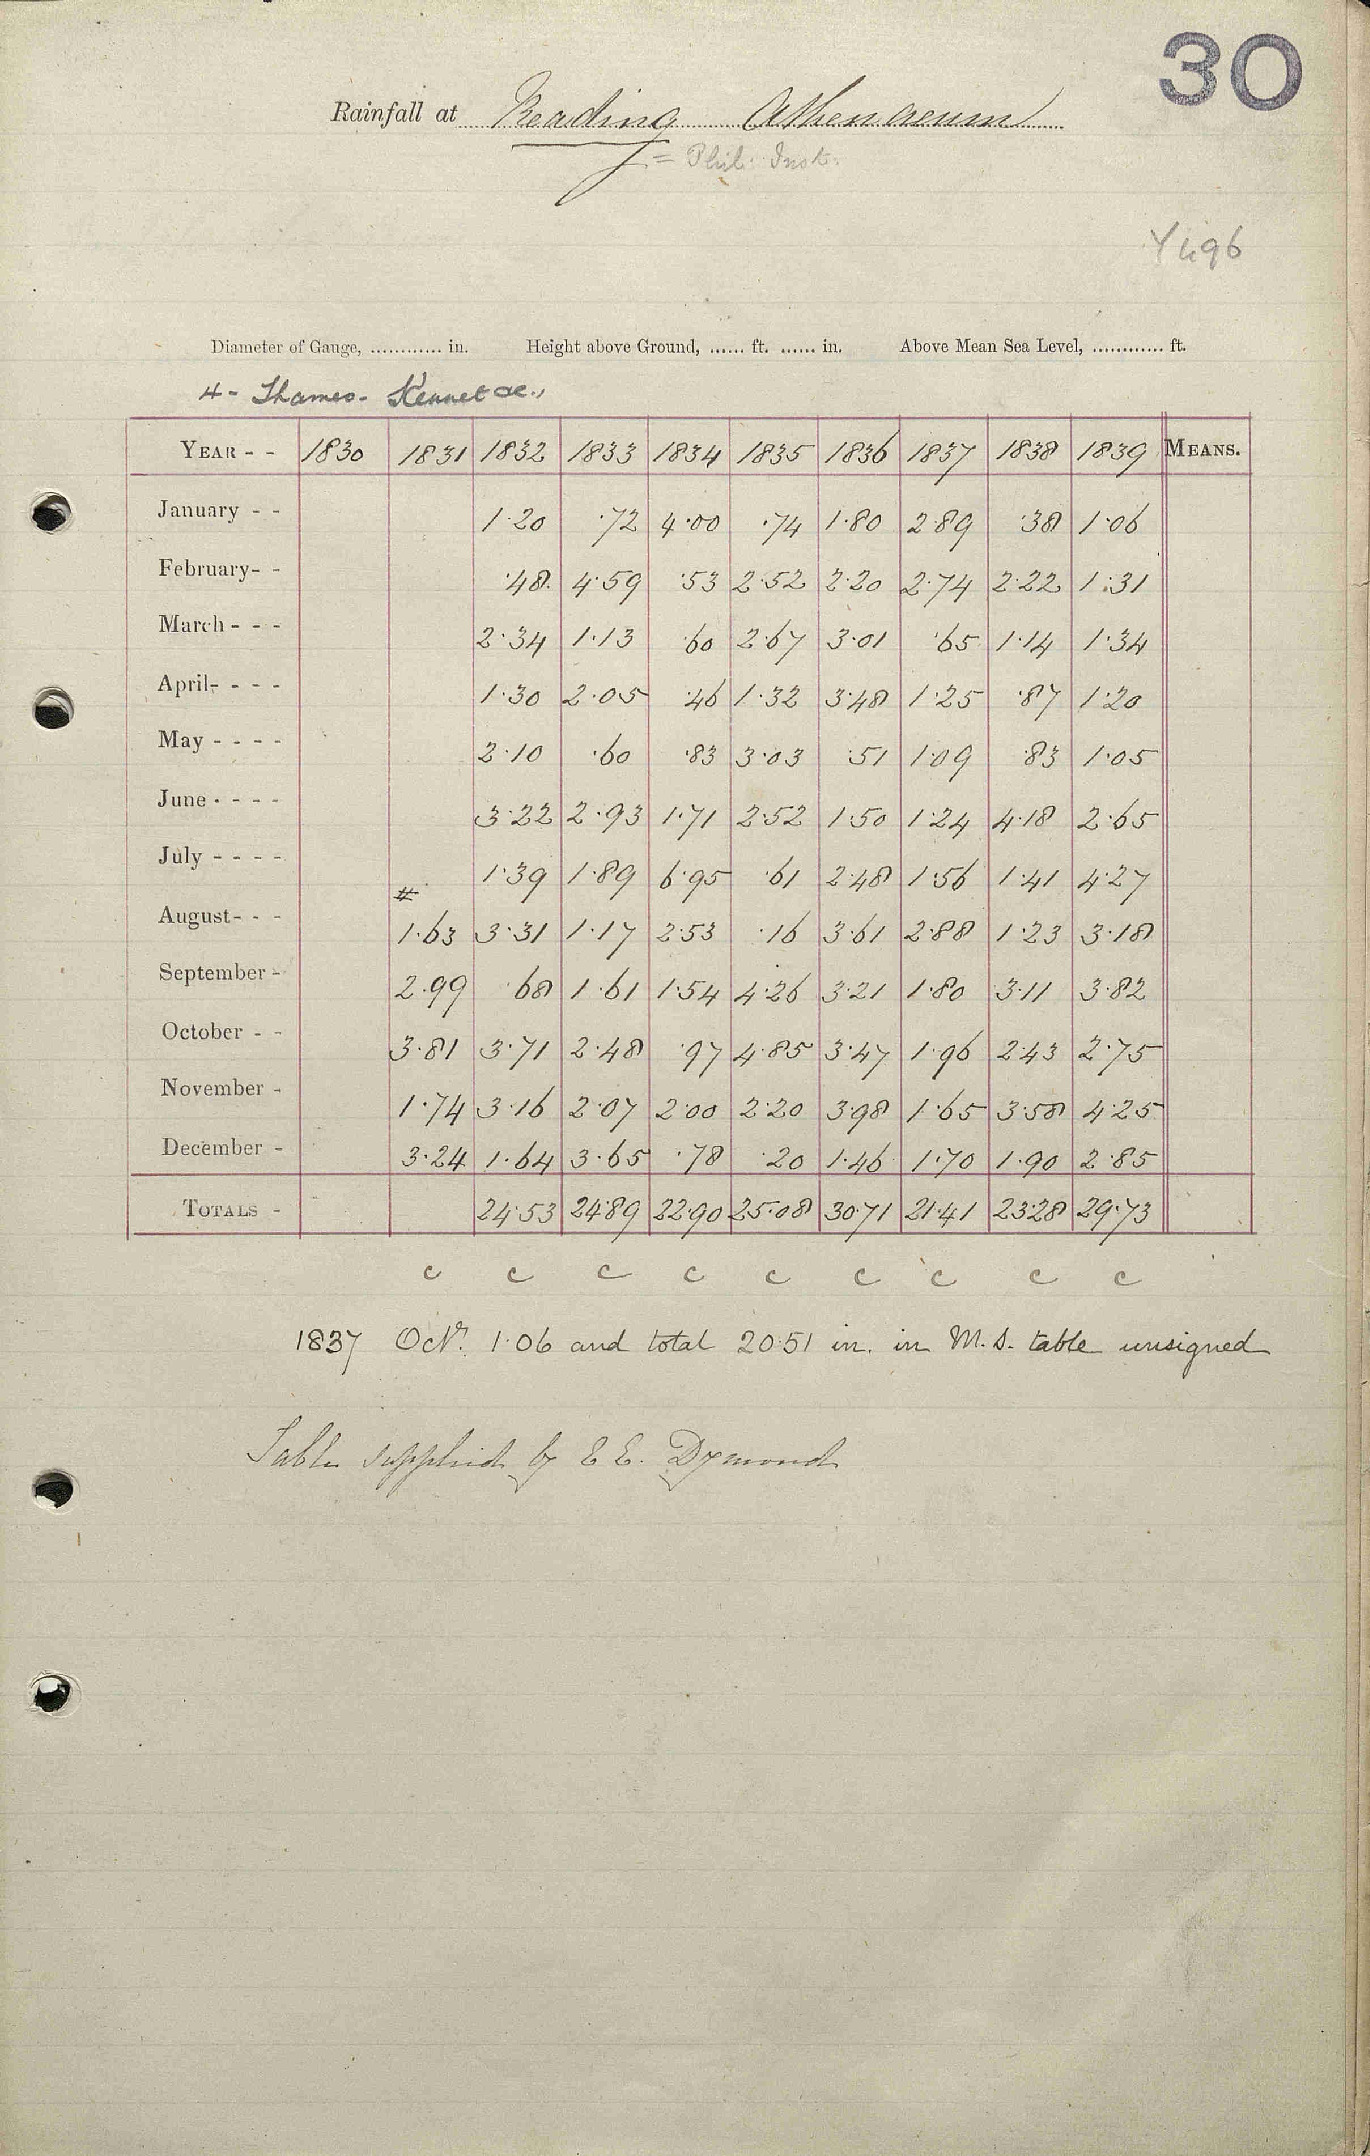 30
Rainfall at Reading Athenaeum
= Phil. Inst.
Y496
Diameter of Gauge, ............ in. Height above Ground, ...... ft. ...... in. Above Mean Sea Level, ............ ft.
4 - Thames - Kennet &c.,
YEAR - - 1830 1831 1832 1833 1834 1835 1836 1837 1838 1839 MEANS.
January - - 1.20 .72 4.00 .74 1.80 2.89 .38 1.06
February - - .48 4.59 .53 2.52 2.20 2.74 2.22 1.31
March - - - 2.34 1.13 .60 2.67 3.01 .65 1.14 1.34
April - - - - 1.30 2.05 .46 1.32 3.48 1.25 .87 1.20
May - - - - 2.10 .60 .83 3.03 .51 1.09 .83 1.05
June - - - - 3.22 2.93 1.71 2.52 1.50 1.24 4.18 2.65
July - - - - 1.39 1.89 6.95 .61 2.48 1.56 1.41 4.27
August - - - # 1.63 3.31 1.17 2.53 .16 3.61 2.88 1.23 3.18
September - 2.99 .68 1.61 1.54 4.26 3.21 1.80 3.11 3.82
October - - 3.81 3.71 2.48 .97 4.85 3.47 1.96 2.43 2.75
November - 1.74 3.16 2.07 2.00 2.20 3.98 1.65 3.58 4.25
December - 3.24 1.64 3.65 .78 .20 1.46 1.70 1.90 2.85
TOTALS - 24.53 24.89 22.90 25.08 30.71 21.41 23.28 29.73
c c c c c c c c c
1837 Octr. 1.06 and total 20.51 in. in M.S. table unsigned
Table supplied by E E. Dymond